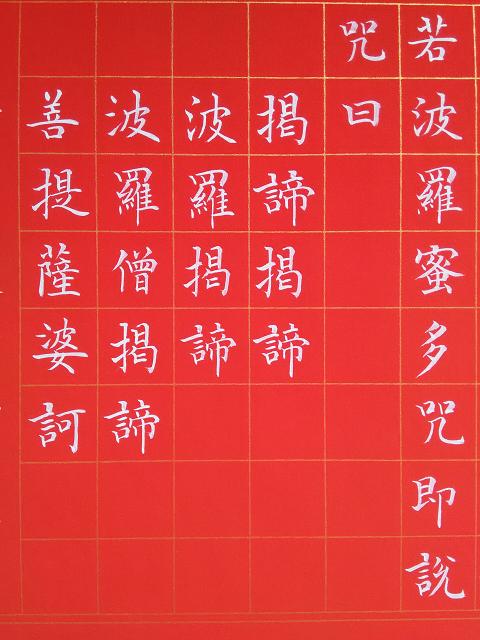 若波羅蜜多咒即說
咒曰
揭諦揭諦
波羅揭諦
波羅僧揭諦
善提薩婆訶